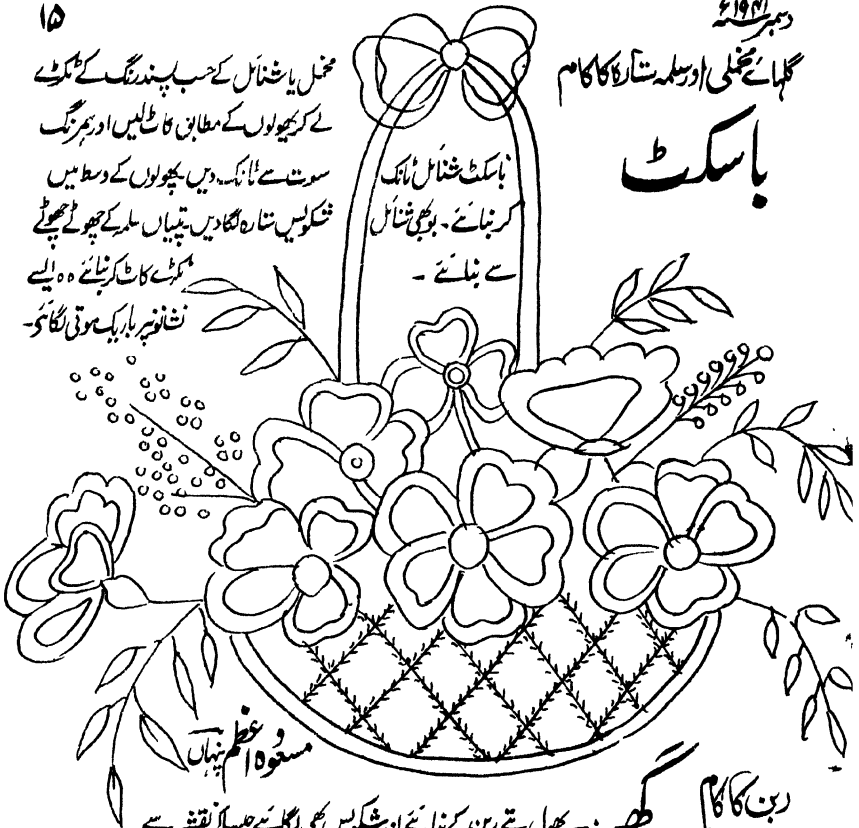 ۱۵
دسمبر سنہ ۱۹۴۱ء
گلہائے مخملی اور سلمہ ستارہ کا کام
باسکٹ
باسکٹ شنائل ٹانک
کر بنائیے۔ بو بھی شنائل
سے بنائیے۔
مخمل یا شنائل کے حسب پسند رنگ کے ٹکڑے
لے کر پھولوں کے مطابق کاٹ لیں اور ہمرنگ
سوت سے ٹانک دیں۔ پھولوں کے وسط میں
ستارہ لگا دیں۔ پتیاں سلمہ کے چھوٹے چھوٹے
ٹکڑے کاٹ کر بنائیے ٥٥ ایسے
نشانوں پر باریک موتی لگائیے۔
مسعودہ اعظم پنہاں
ربن کا کام